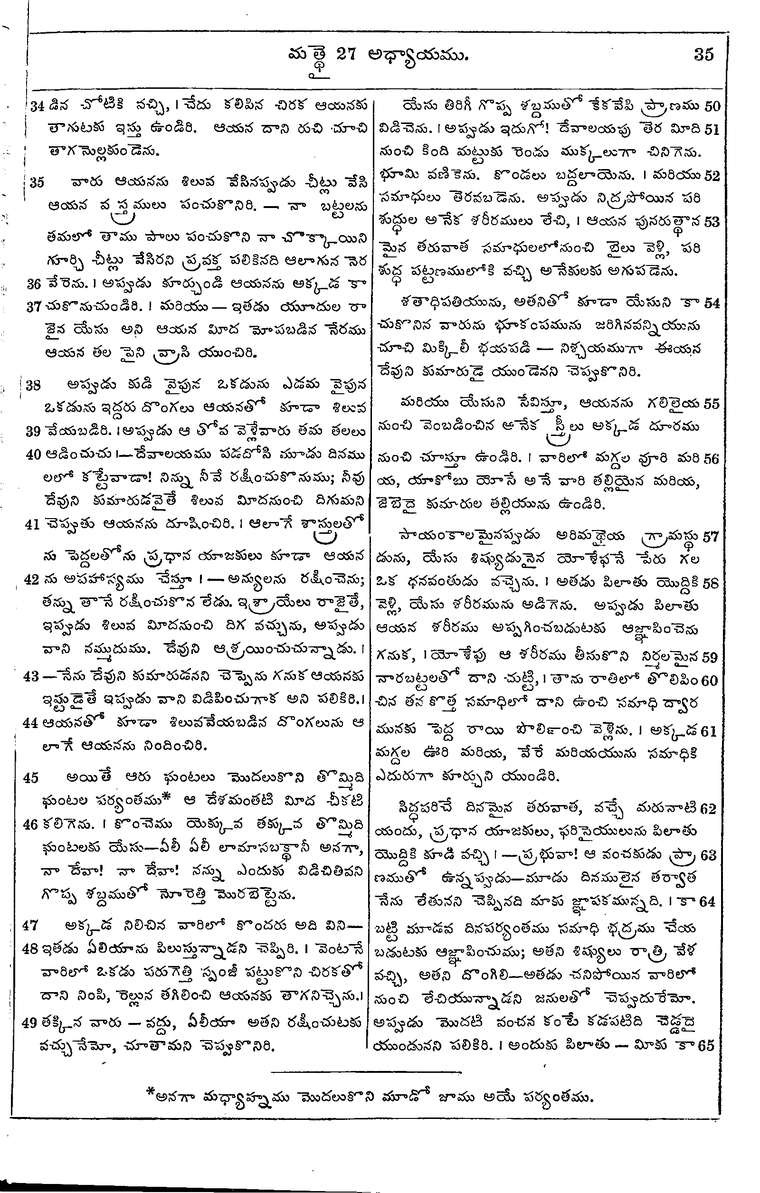 మత్తై 27 అధ్యాయము.
35
34 డిన చోటికి నచ్చి, । చేదు కలిపిన చిరక ఆయనకు
తాగుటకు ఇస్తు ఉండిరి. ఆయన దాని రుచి చూచి
తాగమెల్లకుండెను.
35 వారు ఆయనను శిలువ వేసినప్పుడు చీట్లు వేసి
ఆయన వస్త్రములు పంచుకొనిరి. — నా బట్టలను
తమలో తాము పాలు పంచుకొని నా చొక్కాయిని
గూర్చి చీట్లు వేసిరని ప్రవక్త పలికినది ఆలాగున నెర
36 వేరెను. । అప్పుడు కూర్చుండి ఆయనను అక్కడ కా
37 చుకొనుచుండిరి. । మరియు — ఇతడు యూదుల రా
జైన యేసు అని ఆయన మీద మోపబడిన నేరము
ఆయన తల పైని వ్రాసి యుంచిరి.
38 అప్పుడు కుడి వైపున ఒకడును ఎడమ వైపున
ఒకడును ఇద్దరు దొంగలు ఆయనతో కూడా శిలువ
39 వేయబడిరి. । అప్పుడు ఆ తోవ వెళ్లేవారు తమ తలలు
40 ఆడించుచు । — దేవాలయము పడదోసి మూడు దినము
లలో కట్టేవాడా! నిన్ను నీవే రక్షించుకొనుము; నీవు
దేవుని కుమారుడవైతే శిలువ మీదనుంచి దిగుమని
41 చెప్పుతు ఆయనను దూషించిరి. । ఆలాగే శాస్త్రులతో
ను పెద్దలతోను ప్రధాన యాజకులు కూడా ఆయన
42 ను అపహాస్యము చేస్తూ । — అన్యులను రక్షించెను;
తన్ను తానే రక్షించుకొన లేడు. ఇశ్రాయేలు రాజైతే,
ఇప్పుడు శిలువ మీదనుంచి దిగ వచ్చును, అప్పుడు
వాని నమ్ముదుము. దేవుని ఆశ్రయించుచున్నాడు. ।
43 — నేను దేవుని కుమారుడనని చెప్పెను గనుక ఆయనకు
ఇష్టుడైతే ఇప్పుడు వాని విడిపించుగాక అని పలికిరి. ।
44 ఆయనతో కూడా శిలువవేయబడిన దొంగలును ఆ
లాగే ఆయనను నిందించిరి.
45 అయితే ఆరు ఘంటలు మొదలుకొని తొమ్మిది
ఘంటల పర్యంతము* ఆ దేశమంతటి మీద చీకటి
46 కలిగెను. । కొంచెము యెక్కువ తక్కువ తొమ్మిది
ఘంటలకు యేసు—ఏలీ ఏలీ లామాసబక్థానీ అనగా,
నా దేవా! నా దేవా! నన్ను ఎందుకు విడిచితివని
గొప్ప శబ్దముతో నోరెత్తి మొరబెట్టెను.
47 అక్కడ నిలిచిన వారిలో కొందరు అది విని—
48 ఇతడు ఏలియాను పిలుస్తున్నాడని చెప్పిరి. । వెంటనే
వారిలో ఒకడు పరుగెత్తి స్పంజీ పట్టుకొని చిరకతో
దాని నింపి, రెల్లున తగిలించి ఆయనకు తాగనిచ్చెను. ।
49 తక్కిన వారు — వద్దు, ఏలీయా అతని రక్షించుటకు
వచ్చునేమో, చూతామని చెప్పుకొనిరి.
యేసు తిరిగీ గొప్ప శబ్దముతో కేకవేపి ప్రాణము 50
విడిచెను. । అప్పుడు ఇదుగో! దేవాలయపు తెర మీది 51
నుంచి కింది మట్టుకు రెండు ముక్కలుగా చినిగెను.
భూమి వణికెను. కొండలు బద్దలాయెను. । మరియు 52
సమాధులు తెరవబడెను. అప్పుడు నిద్రపోయిన పరి
శుద్ధుల అనేక శరీరములు లేచి, । ఆయన పునరుత్థాన 53
మైన తరువాత సమాధులలోనుంచి బైలు వెళ్లి, పరి
శుద్ధ పట్టణములోకి వచ్చి అనేకులకు అగుపడెను.
శతాధిపతియును, అతనితో కూడా యేసుని కా 54
చుకొనిన వారును భూకంపమును జరిగినవన్నియును
చూచి మిక్కిలీ భయపడి — నిశ్చయముగా ఈయన
దేవుని కుమారుడై యుండెనని చెప్పుకొనిరి.
మరియు యేసుని సేవిస్తూ, ఆయనను గలిలైయ 55
నుంచి వెంబడించిన అనేక స్త్రీలు అక్కడ దూరము
నుంచి చూస్తూ ఉండిరి. । వారిలో మగ్దల వూరి మరి 56
య, యాకోబు యోసే అనే వారి తల్లియైన మరియ,
జెబెదై కుమారుల తల్లియును ఉండిరి.
సాయంకాలమైనప్పుడు అరిమథైయ గ్రామస్థు 57
డును, యేసు శిష్యుడునైన యోశేఫనే పేరు గల
ఒక ధనవంతుడు వచ్చెను. । అతడు పిలాతు యొద్దికి 58
వెళ్లి, యేసు శరీరమును అడిగెను. అప్పుడు పిలాతు
ఆయన శరీరము అప్పగించబడుటకు ఆజ్ఞాపించెను
గనుక, । యోశేఫు ఆ శరీరము తీసుకొని నిర్మలమైన 59
నారబట్టలతో దాని చుట్టి, । తాను రాతిలో తొలిపిం 60
చిన తన కొత్త సమాధిలో దాని ఉంచి సమాధి ద్వార
మునకు పెద్ద రాయి పొర్లించి వెళ్లెను. । అక్కడ 61
మగ్దల ఊరి మరియ, వేరే మరియయును సమాధికి
ఎదురుగా కూర్చుని యుండిరి.
సిద్ధపరిచే దినమైన తరువాత, వచ్చే మరునాటి 62
యందు, ప్రధాన యాజకులు, ఫరిసైయులును పిలాతు
యొద్దికి కూడి వచ్చి । — ప్రభువా! ఆ వంచకుడు ప్రా 63
ణముతో ఉన్నప్పుడు—మూడు దినములైన తర్వాత
నేను లేతునని చెప్పినది మాకు జ్ఞాపకమున్నది. । కా 64
బట్టి మూడవ దినపర్యంతము సమాధి భద్రము చేయ
బడుటకు ఆజ్ఞాపించుము; అతని శిష్యులు రాత్రి వేళ
వచ్చి, అతని దొంగిలి—అతడు చనిపోయిన వారిలో
నుంచి లేచియున్నాడని జనులతో చెప్పుదురేమో.
అప్పుడు మొదటి వంచన కంటే కడపటిది చెడ్డదై
యుండునని పలికిరి. । అందుకు పిలాతు — మీకు కా 65
*అనగా మధ్యాహ్నము మొదలుకొని మూడో జాము అయే పర్యంతము.